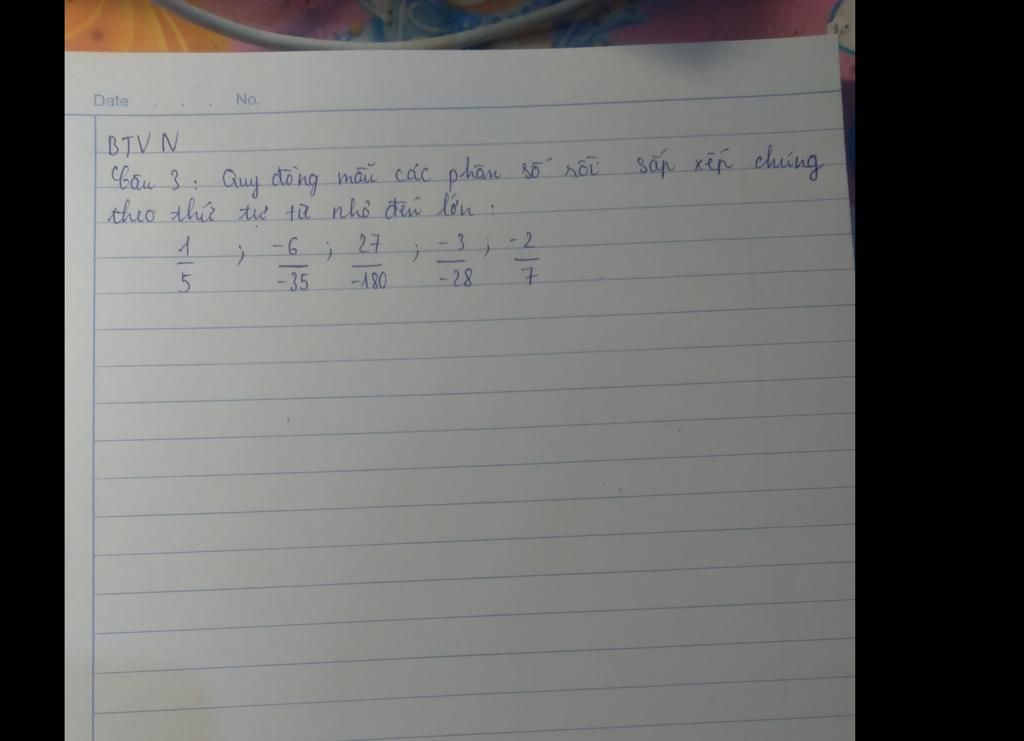 Date . . . No.
BTVN
Câu 3: Quy đồng mẫu các phân số rồi sắp xếp chúng
theo thứ tự từ nhỏ đến lớn:
1/5 ; -6/-35 ; 27/-180 ; -3/-28 ; -2/7